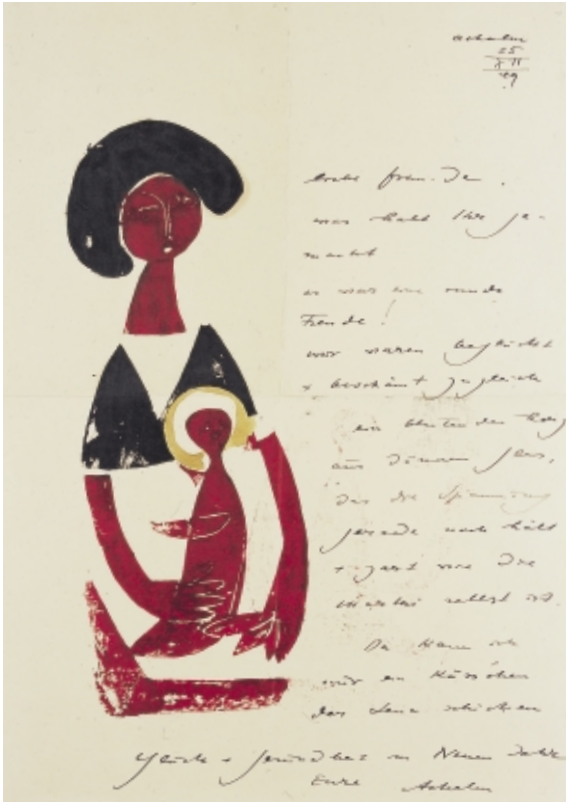 Achalm
25
XII
49
Liebe Freunde.
was habt Ihr ge-
macht
es war eine runde
Freude!
wir waren beglückt
+ beschämt zugleich
ein
aus dünnem
das die Spannung
gerade noch hält
+ zart wie die
selbst ist.
Da kann ich
nur ein Küsschen
das Lena schicken
Glück + Gesundheit im Neuen Jahr
Eure Achalm